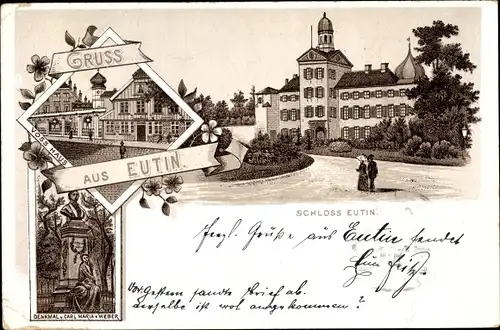 GRUSS
AUS EUTIN.
VOSS HAUS
SCHLOSS EUTIN.
DENKMAL v. CARL MARIA v. WEBER
Herzl. Grüße aus Eutin sendet
Euer Fritz.
Vor Gestern sandte Brief ab.
derselbe ist wol angekommen?